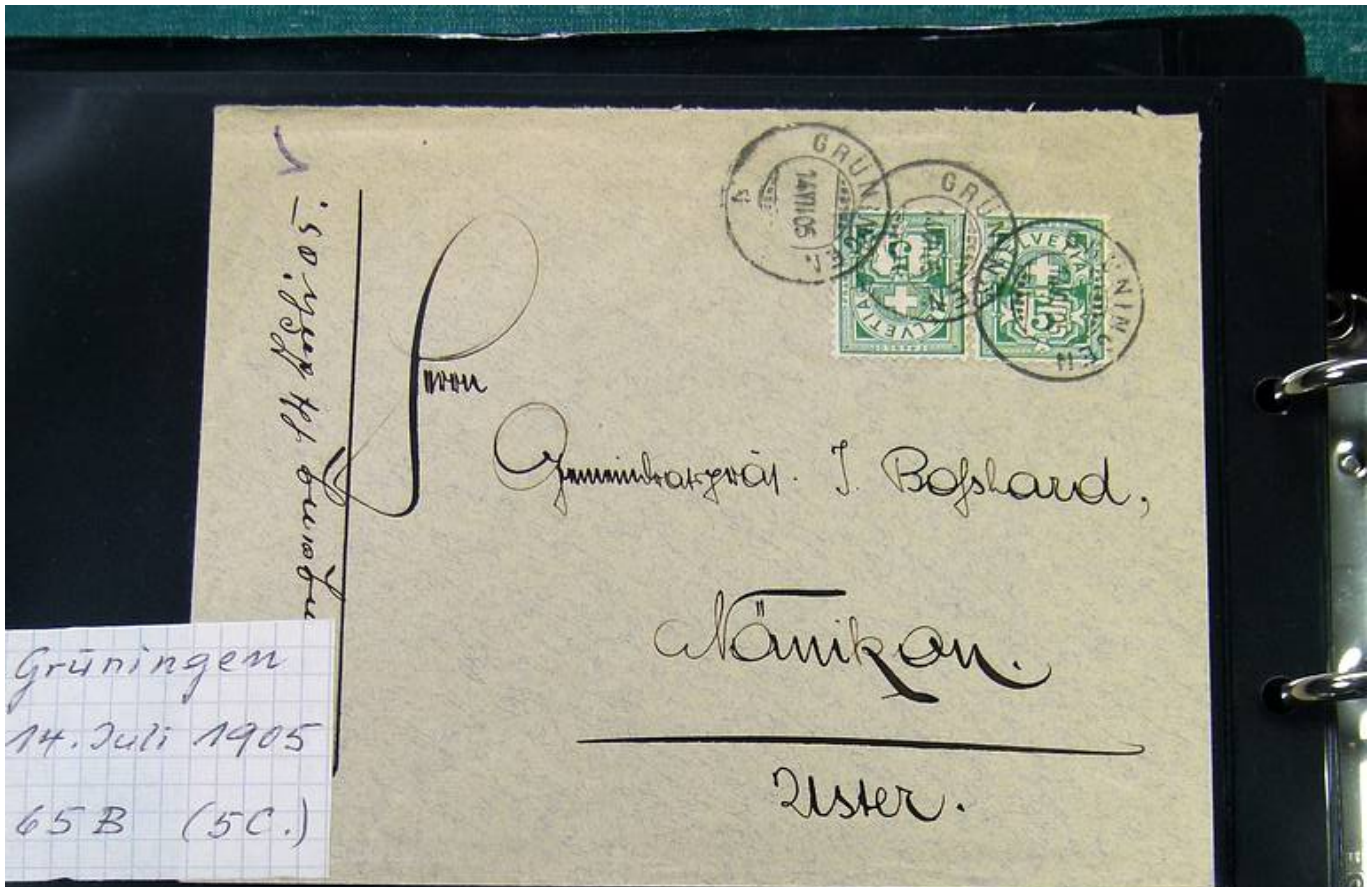 GRÜNINGEN
14 VII 05
GRÜNINGEN
GRÜNINGEN
HELVETIA
5
HELVETIA
5
Herrn
Gemeindratspräs. J. Boßhard,
Nänikon.
Uster.
Grüningen
14. Juli 1905
65 B (5C.)